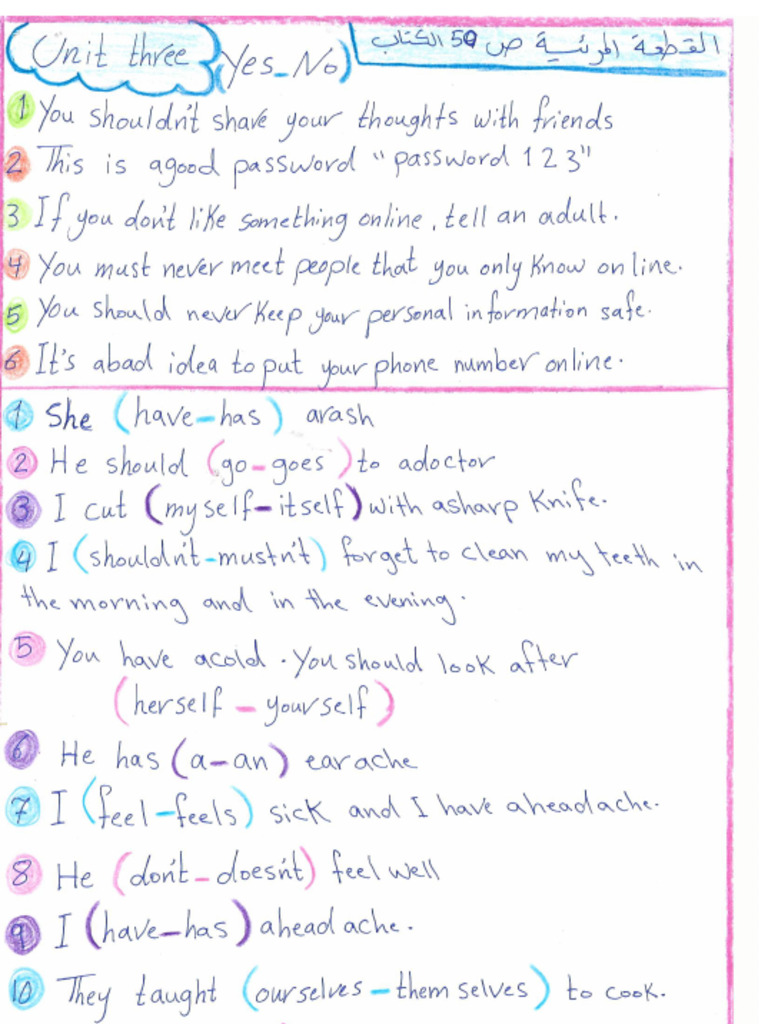 Unit three
(Yes_No)
القطعة المرئية ص 59 الكتاب
1 You shouldn't share your thoughts with friends
2 This is agood password "password 123"
3 If you don't like something online, tell an adult.
4 You must never meet people that you only know online.
5 You should never keep your personal information safe.
6 It's abad idea to put your phone number online.
1 She (have-has) arash
2 He should (go-goes) to adoctor
3 I cut (myself-itself) with asharp knife.
4 I (shouldn't-mustn't) forget to clean my teeth in
the morning and in the evening.
5 You have acold. You should look after
(herself - yourself)
6 He has (a-an) earache
7 I (feel-feels) sick and I have aheadache.
8 He (don't-doesn't) feel well
9 I (have-has) aheadache.
10 They taught (ourselves-themselves) to cook.